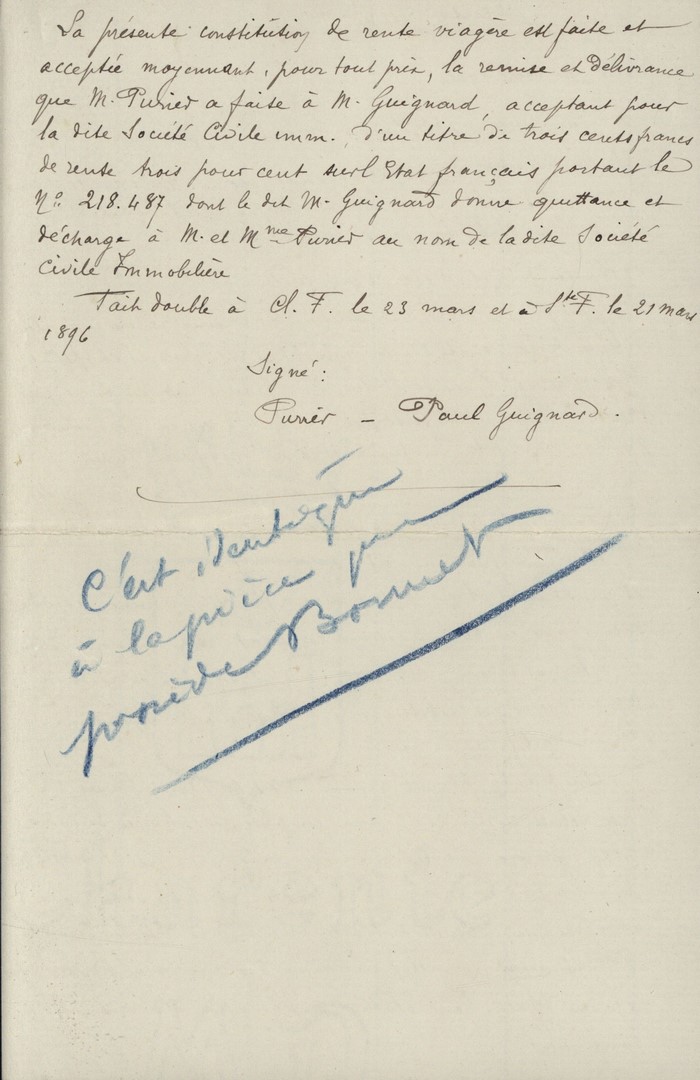 La présente constitution de rente viagère est faite et
acceptée moyennant, pour tout prix, la remise et délivrance
que M. Purier a faite à M. Guignard, acceptant pour
la dite Société Civile imm. d'un titre de trois cents francs
de rente trois pour cent sur l'Etat français portant le
No. 218.487 dont le dit M. Guignard donne quittance et
décharge à M. et Mme Purier au nom de la dite Société
Civile Immobilière
Fait double à Cl. F. le 23 mars et à Ste F. le 21 mars
1896
Signé:
Purier - Paul Guignard.
C'est identique
à la pièce que
possède Bonnet